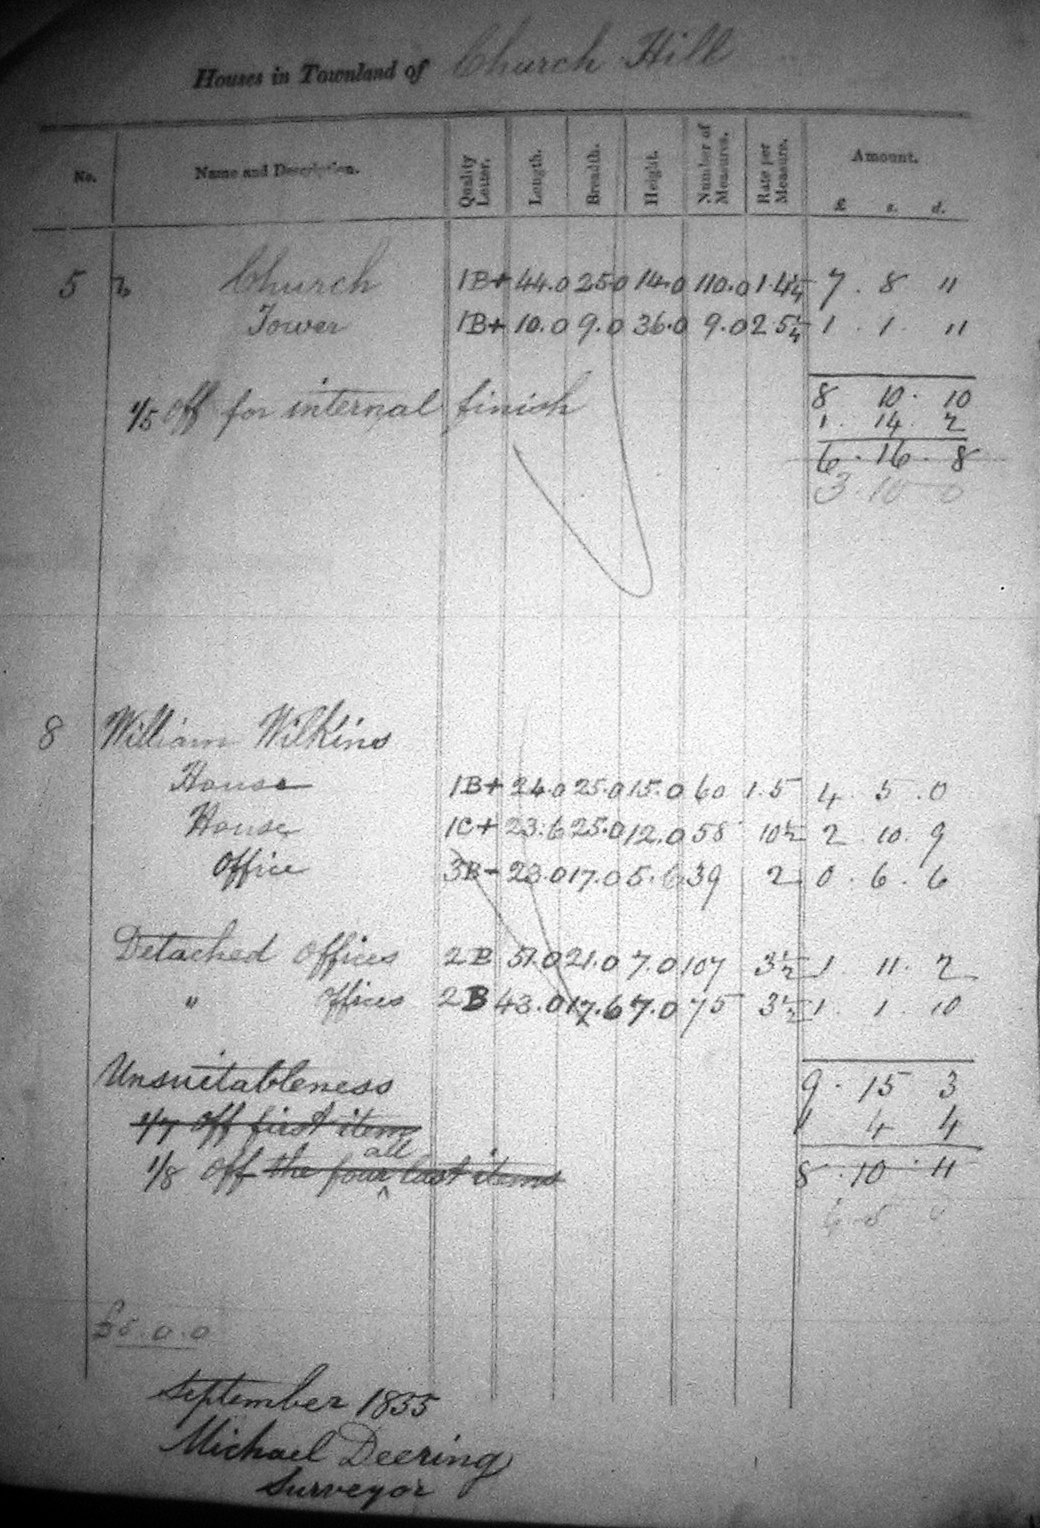 Houses in Townland of Church Hill
No. Name and Description. Quality Letter. Length. Breadth. Height. Number of Measures. Rate per Measure. Amount. £ s. d.
5 Church 1B+ 44.0 25.0 14.0 110.0 1.4¼ 7 . 8 "
Tower 1B+ 10.0 9.0 36.0 9.0 2 5¼ 1 . 1 . "
8 10 . 10
1/5 off for internal finish 1 . 14 . 2
6 . 16 . 8
3 . 10 0
8 William Wilkins
House 1B+ 24.0 25.0 15.0 60 1.5 4 . 5 . 0
House 1C+ 23.6 25.0 12.0 58 10½ 2 . 10 . 9
Office 3B- 23.0 17.0 5.6 39 2 0 . 6 . 6
Detached Offices 2B 51.0 21.0 7.0 107 3½ 1 . 11 . 2
" Offices 2B 43.0 17.6 7.0 75 3½ 1 . 1 . 10
Unsuitableness 9 . 15 3
1/7 off first item 1 4 4
all
1/8 off the four last items 8 . 10 . 11
6 5 0
£5.0.0
September 1855
Michael Deering
Surveyor